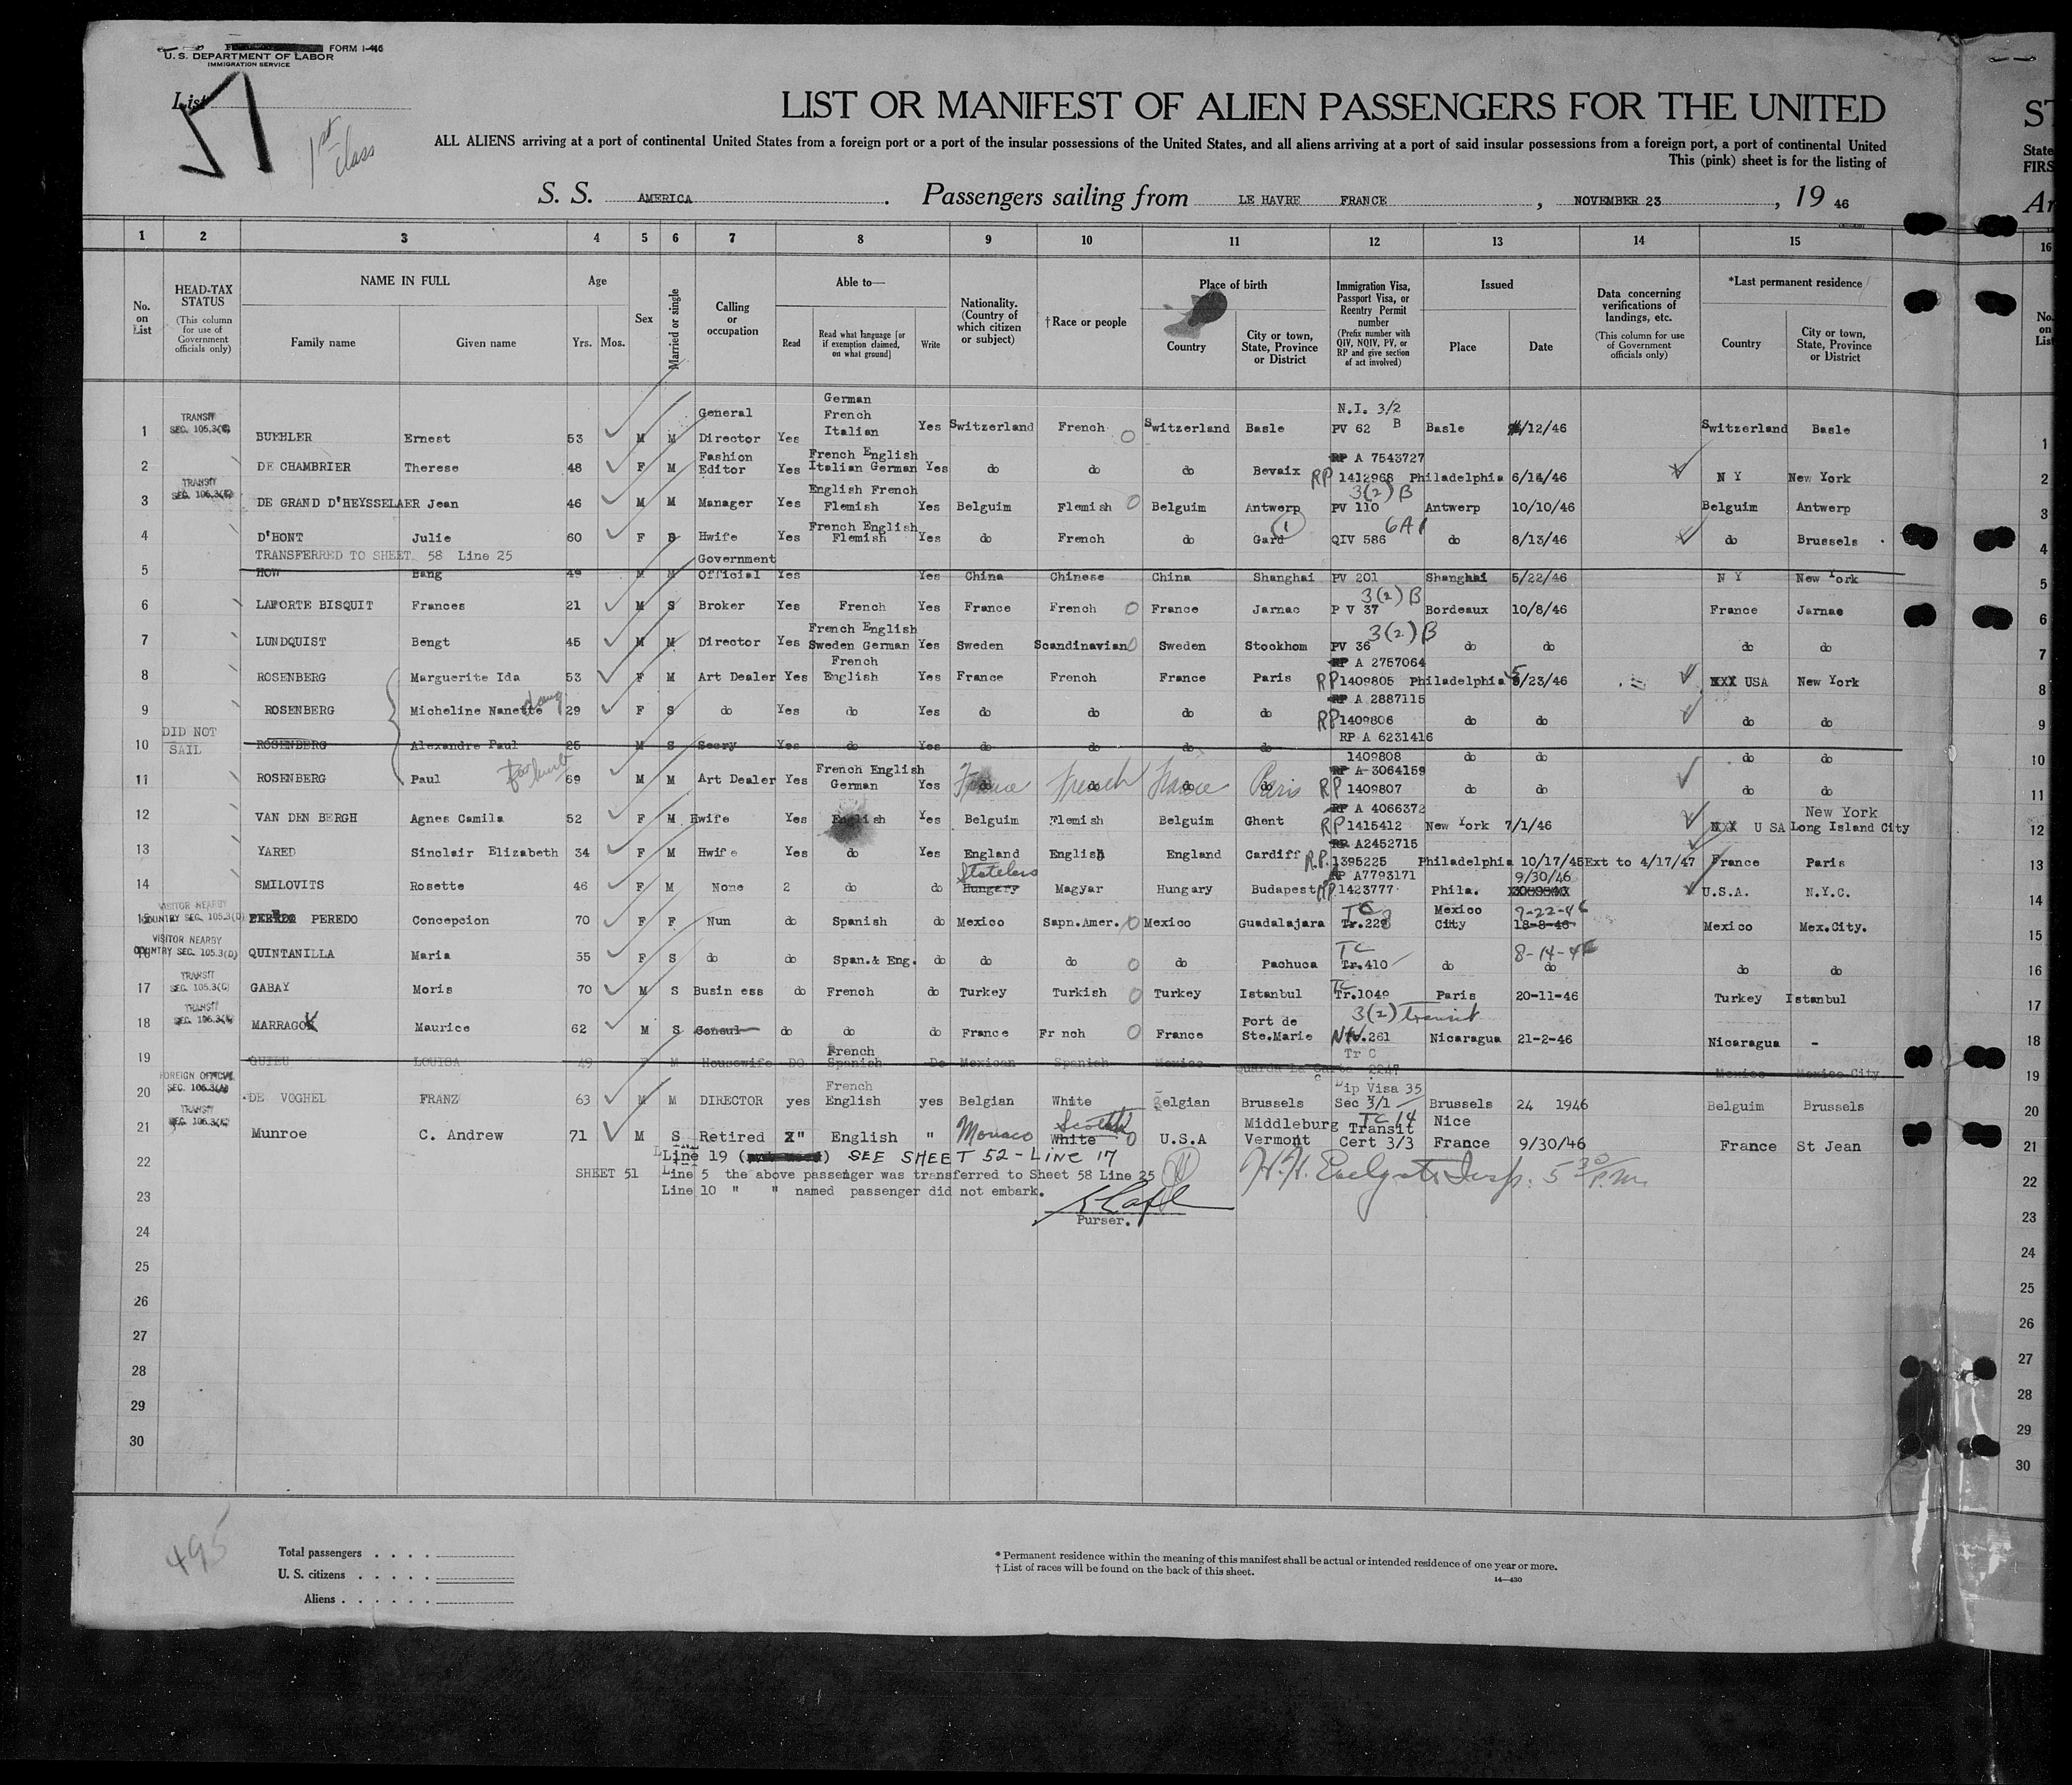 FORM I-416
U. S. DEPARTMENT OF LABOR
IMMIGRATION SERVICE
List
51
1st class
LIST OR MANIFEST OF ALIEN PASSENGERS FOR THE UNITED
ST
ALL ALIENS arriving at a port of continental United States from a foreign port or a port of the insular possessions of the United States, and all aliens arriving at a port of said insular possessions from a foreign port, a port of continental United
State
This (pink) sheet is for the listing of
FIRS
S. S. AMERICA . Passengers sailing from LE HAVRE FRANCE , NOVEMBER 23 , 19 46
Ar
1 2 3 4 5 6 7 8 9 10 11 12 13 14 15 16
No. on List
HEAD-TAX STATUS
(This column for use of Government officials only)
NAME IN FULL
Family name Given name
Age
Yrs. Mos.
Sex
Married or single
Calling or occupation
Able to—
Read
Read what language [or if exemption claimed, on what ground]
Write
Nationality. (Country of which citizen or subject)
†Race or people
Place of birth
Country
City or town, State, Province or District
Immigration Visa, Passport Visa, or Reentry Permit number
(Prefix number with QIV, NQIV, PV, or RP and give section of act involved)
Issued
Place Date
Data concerning verifications of landings, etc.
(This column for use of Government officials only)
*Last permanent residence
Country
City or town, State, Province or District
No. on List
TRANSIT SEC. 105.3(C)
General German French Italian N.I. 3/2 B
1 BUEHLER Ernest 53 M M Director Yes Yes Switzerland French Switzerland Basle PV 62 Basle /12/46 Switzerland Basle 1
Fashion French English RP A 7543727
2 DE CHAMBRIER Therese 48 F M Editor Yes Italian German Yes do do do Bevaix RP 1412968 Philadelphia 6/14/46 N Y New York 2
TRANSIT SEC. 105.3(C)
English French 3(2) B
3 DE GRAND D'HEYSSELAER Jean 46 M M Manager Yes Flemish Yes Belguim Flemish Belguim Antwerp PV 110 Antwerp 10/10/46 Belguim Antwerp 3
French English 1 6A1
4 D'HONT Julie 60 F S Hwife Yes Flemish Yes do French do Gard QIV 586 do 8/13/46 do Brussels 4
TRANSFERRED TO SHEET 58 Line 25 Government
5 HOW Bang 49 M M Official Yes Yes China Chinese China Shanghai PV 201 Shanghai 5/22/46 N Y New York 5
3(2) B
6 LAPORTE BISQUIT Frances 21 M S Broker Yes French Yes France French France Jarnac P V 37 Bordeaux 10/8/46 France Jarnac 6
French English 3(2) B
7 LUNDQUIST Bengt 45 M M Director Yes Sweden German Yes Sweden Scandinavian Sweden Stockhom PV 36 do do do do 7
French RP A 2757064
8 ROSENBERG Marguerite Ida 53 F M Art Dealer Yes English Yes France French France Paris RP 1409805 Philadelphia 5/23/46 XXX USA New York 8
RP A 2887115
9 ROSENBERG Micheline Nanette daug 29 F S do Yes do Yes do do do do RP 1409806 do do do do 9
DID NOT SAIL RP A 6231416
10 ROSENBERG Alexandre Paul 25 M S Secry Yes do Yes do do do do 1409808 do do do do 10
French English RP A 3064159
11 ROSENBERG Paul 69 M M Art Dealer Yes German Yes do France do French do France do Paris RP 1409807 do do do do 11
RP A 4066372 New York
12 VAN DEN BERGH Agnes Camila 52 F M Hwife Yes English Yes Belguim Flemish Belguim Ghent RP 1415412 New York 7/1/46 U SA Long Island City 12
RP A2452715
13 YARED Sinclair Elizabeth 34 F M Hwife Yes do Yes England English England Cardiff R.P. 1395225 Philadelphia 10/17/45 Ext to 4/17/47 France Paris 13
Stateless RP A7793171 9/30/46
14 SMILOVITS Rosette 46 F M None 2 do do Hungary Magyar Hungary Budapest RP 1423777 Phila. U.S.A. N.Y.C. 14
VISITOR NEARBY COUNTRY SEC. 105.3(D)
TC Mexico 9-22-46
15 PEREDO Concepcion 70 F F Nun do Spanish do Mexico Sapn.Amer. Mexico Guadalajara Tr.229 City 18-8-46 Mexico Mex.City. 15
VISITOR NEARBY COUNTRY SEC. 105.3(D)
TC 8-14-46
16 QUINTANILLA Maria 55 F S do do Span.& Eng. do do do do Pachuca Tr.410 do do do do 16
TRANSIT SEC. 105.3(C)
TC
17 GABAY Moris 70 M S Busin ess do French do Turkey Turkish Turkey Istanbul Tr.1049 Paris 20-11-46 Turkey Istanbul 17
TRANSIT SEC. 105.3(C)
Port de 3(2) transit
18 MARRAGOX Maurice 62 M S Consul do do do France Fr nch France Ste.Marie 261 Nicaragua 21-2-46 Nicaragua - 18
French Tr C
19 QUIEU LOUISA 49 F M Housewife DO Spanish Do Mexican Spanish Mexico 2247 Mexico Mexico City 19
FOREIGN OFFICIAL SEC. 105.3(A)
French Dip Visa 35
20 DE VOGHEL FRANZ 63 M M DIRECTOR yes English yes Belgian White Belgian Brussels Sec 3/1 Brussels 24 1946 Belguim Brussels 20
TRANSIT SEC. 105.3(C)
Scotch Middleburg TC 14 Transit Nice
21 Munroe C. Andrew 71 M S Retired " English " Monaco White U.S.A Vermont Cert 3/3 France 9/30/46 France St Jean 21
22 Line 19 SEE SHEET 52 - LINE 17 22
SHEET 51 Line 5 the above passenger was transferred to Sheet 58 Line 25
Insp. 5 30 P.M.
23 Line 10 " " named passenger did not embark. 23
Purser.
24 24
25 25
26 26
27 27
28 28
29 29
30 30
495
Total passengers
U. S. citizens
Aliens
* Permanent residence within the meaning of this manifest shall be actual or intended residence of one year or more.
† List of races will be found on the back of this sheet.
14—430